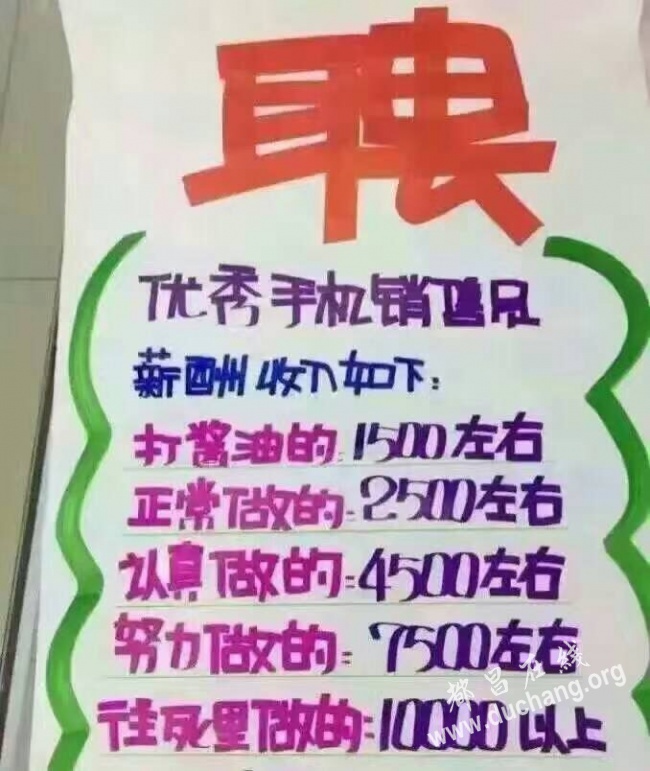 聘
优秀手机销售员
薪酬收入如下:
打酱油的:1500左右
正常做的:2500左右
认真做的:4500左右
努力做的:7500左右
往死里做的:10000以上
都昌在线
www.duchang.org